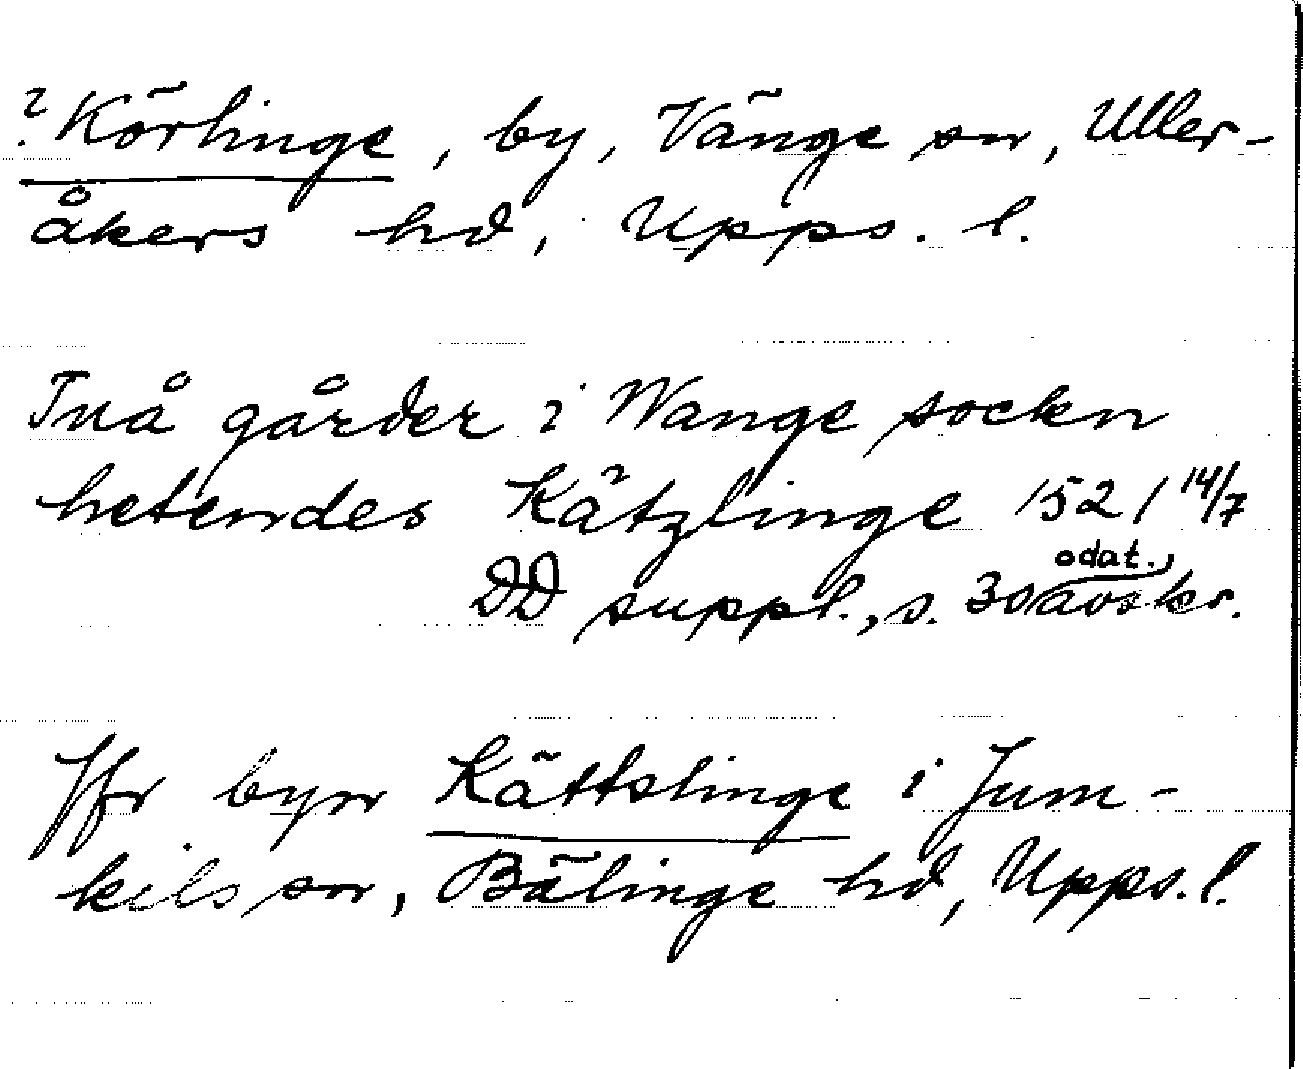 ? Körlinge, by, Vänge sn, Uller-
åkers hd, Upps. l.
Tuå gårder i Wange sockn
hetendes Kätzlinge 1521 14/7
odat.
DD suppl., s. 30 avskr.
Jfr byn Kättslinge i Jum-
kils sn, Bälinge hd, Upps. l.